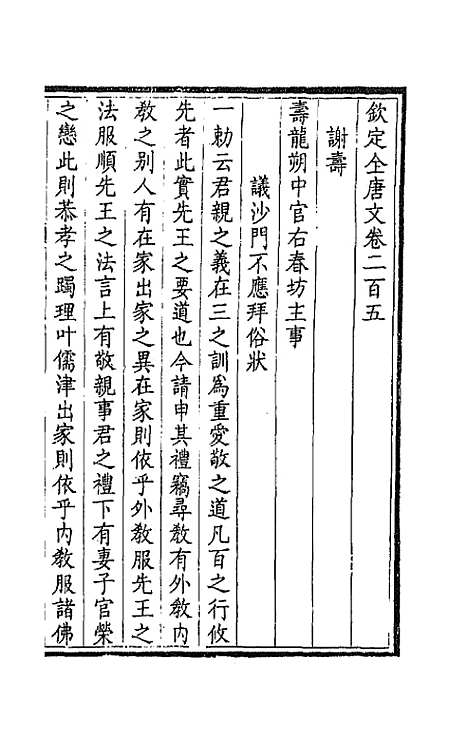 欽定全唐文卷二百五
謝壽
壽龍朔中官右春坊主事
議沙門不應拜俗狀
一勅云君親之義在三之訓爲重愛敬之道凡百之行攸
先者此實先王之要道也今請申其禮竊尋敎有外敎內
敎之别人有在家出家之異在家則依乎外敎服先王之
法服順先王之法言上有敬親事君之禮下有妻子官榮
之戀此則恭孝之躅理叶儒津出家則依乎內敎服諸佛